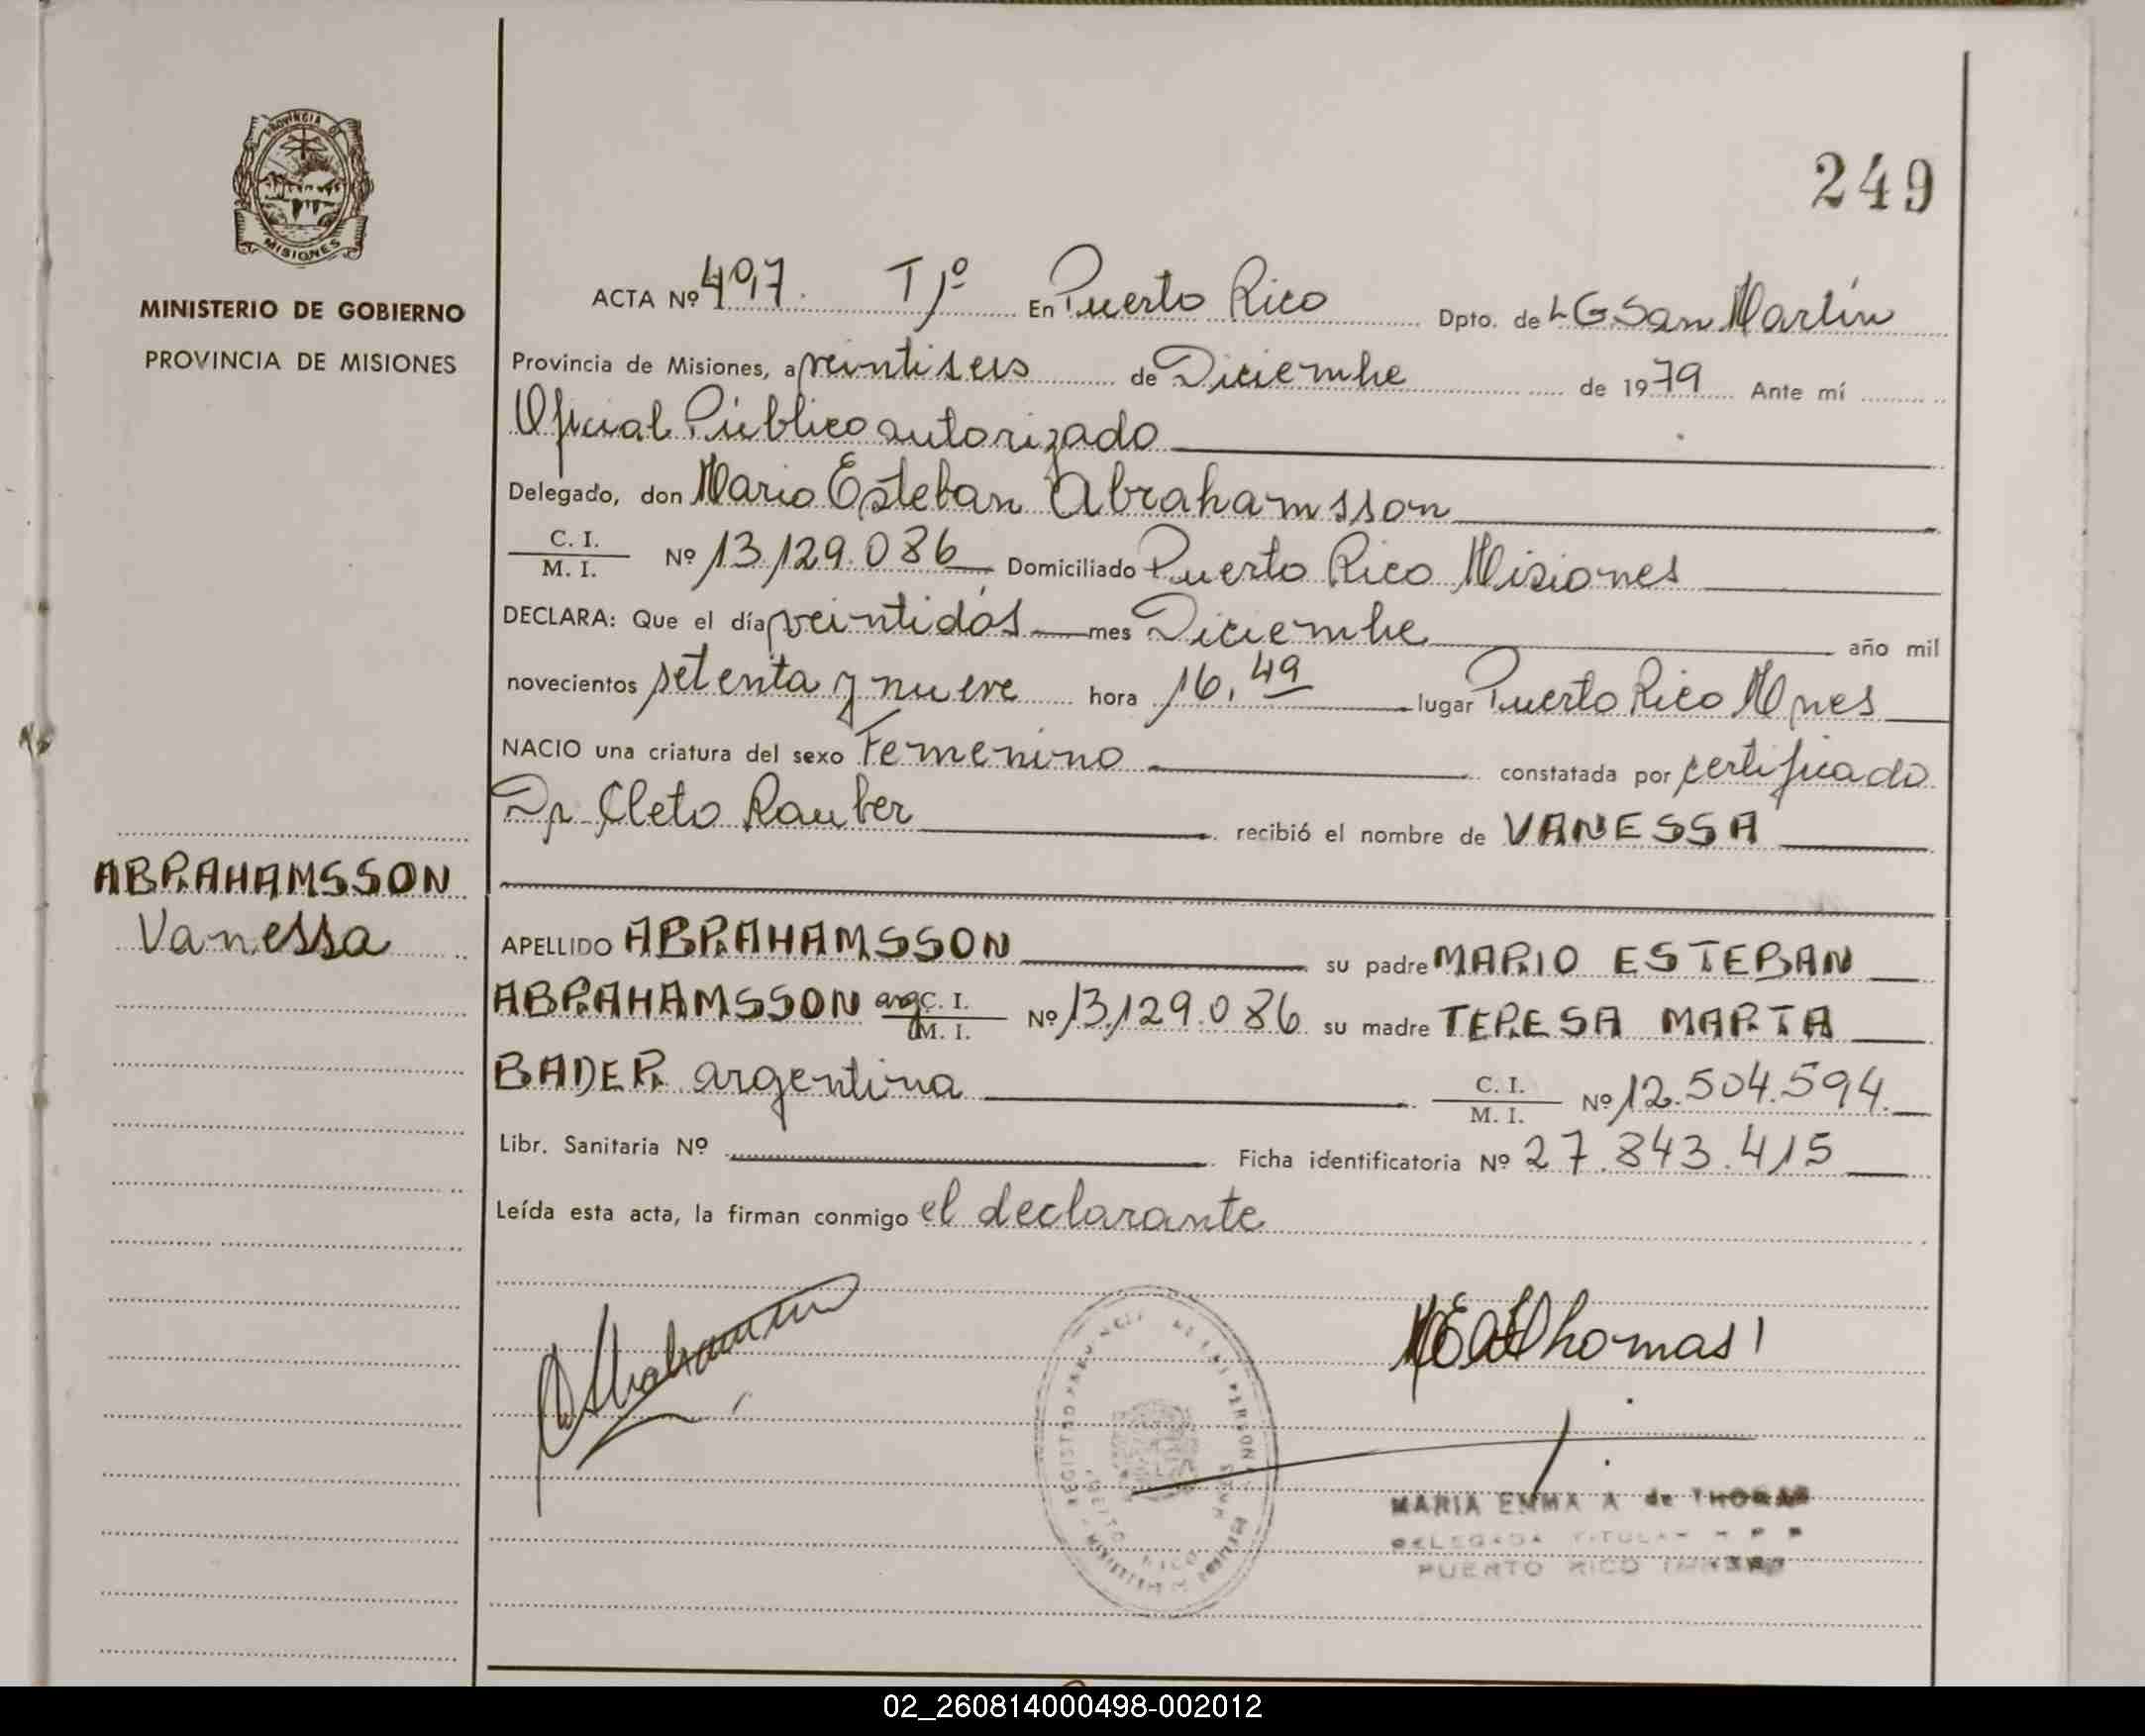 PROVINCIA DE
MISIONES
MINISTERIO DE GOBIERNO
PROVINCIA DE MISIONES
249
ACTA Nº 497. Tº 1º En Puerto Rico Dpto. de L G San Martín
Provincia de Misiones, a veintiseis de Diciembre de 1979 Ante mí
Oficial Público autorizado
Delegado, don Mario Esteban Abrahamsson
C. I.
M. I. Nº 13.129.086 Domiciliado Puerto Rico Misiones
DECLARA: Que el día veintidós mes Diciembre año mil
novecientos setenta y nueve hora 16,49 lugar Puerto Rico Mnes
NACIO una criatura del sexo Femenino constatada por certificado
Dr Cleto Rauber recibió el nombre de VANESSA
ABRAHAMSSON
Vanessa
APELLIDO ABRAHAMSSON su padre MARIO ESTEBAN
ABRAHAMSSON arg C. I.
M. I. Nº 13.129.086 su madre TERESA MARTA
BADER argentina C. I.
M. I. Nº 12.504.594.
Libr. Sanitaria Nº Ficha identificatoria Nº 27.843.415
Leída esta acta, la firman conmigo el declarante
Thomas
MARIA EMMA A de THOMAS
DELEGADA TITULAR
PUERTO RICO
02_260814000498-002012